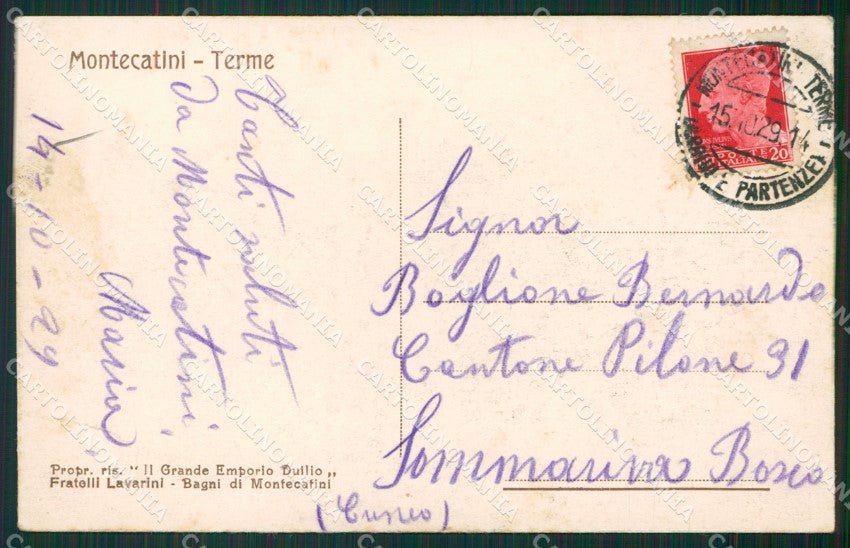 Montecatini - Terme
Tanti saluti
da Montecatini
Maria
14-10-29
Propr. ris. " Il Grande Emporio Duilio „
Fratelli Lavarini - Bagni di Montecatini
MONTECATINI TERME
15.10.29.14
ARRIVI E PARTENZE
POSTE
ITALIANE
20
Signor
Boglione Bernardo
Cantone Pilone 31
Sommariva Bosco
(Cuneo)
CARTOLINOMANIA